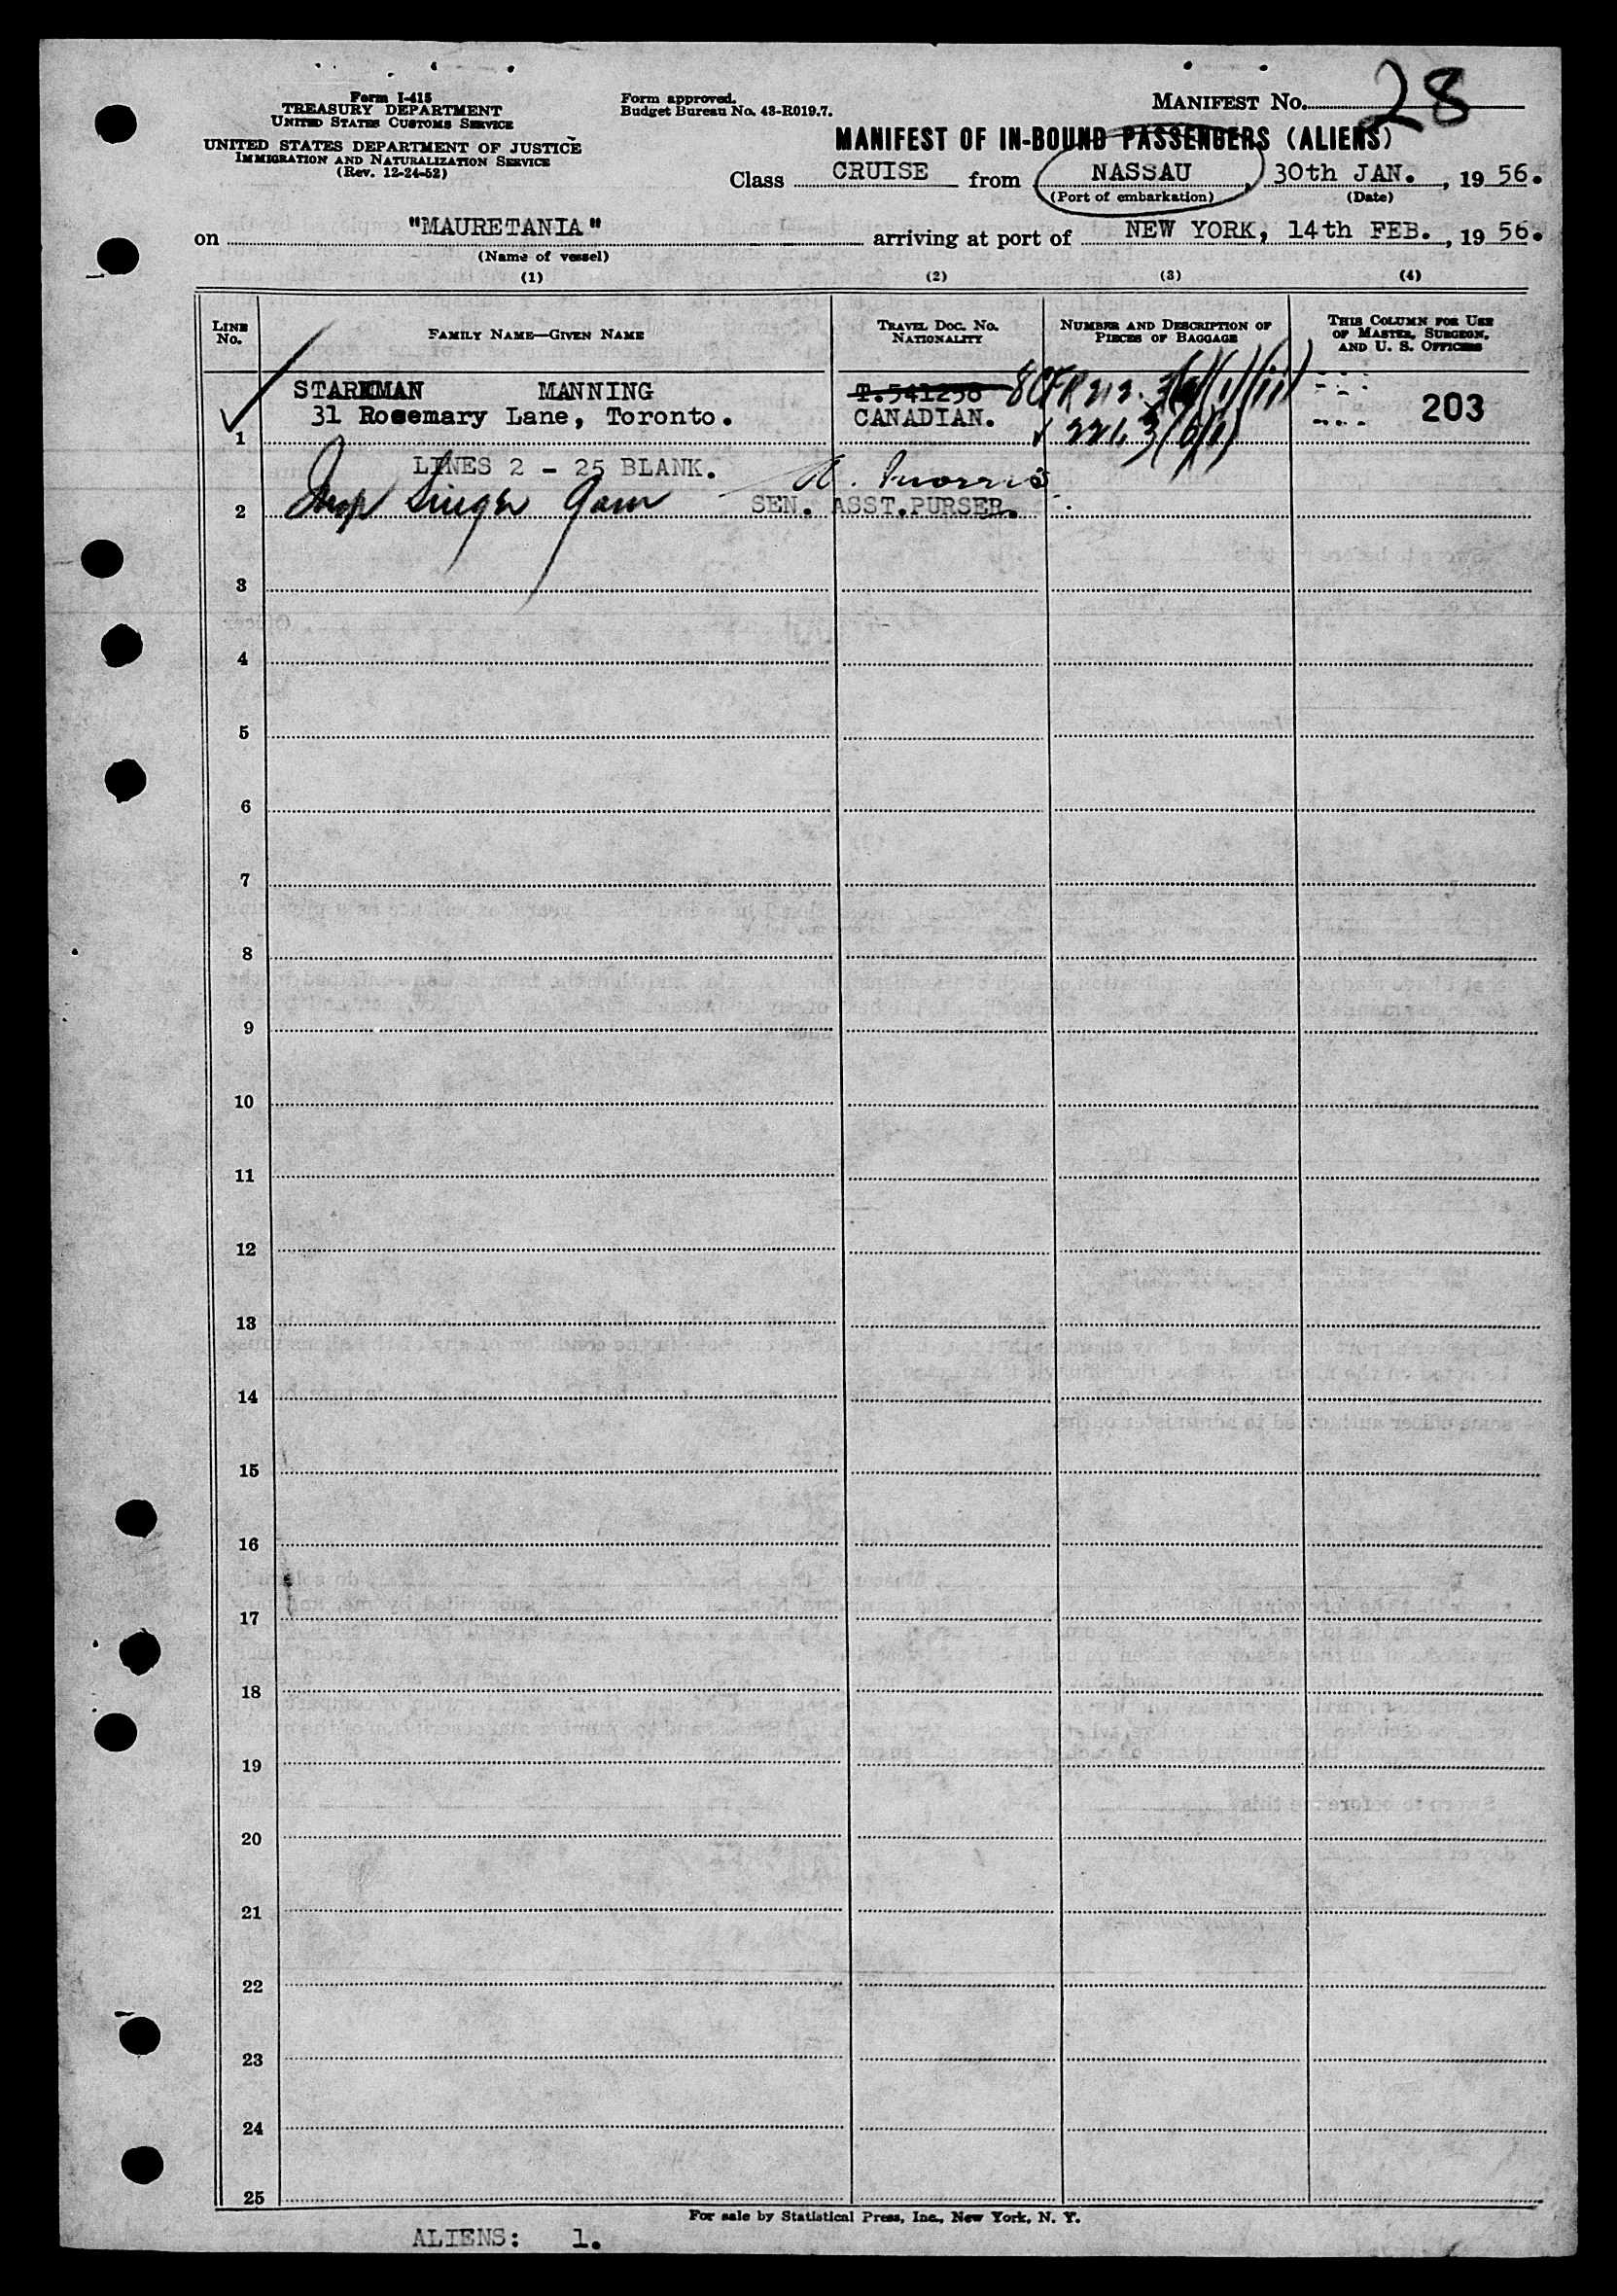 Form I-415
TREASURY DEPARTMENT
UNITED STATES CUSTOMS SERVICE
UNITED STATES DEPARTMENT OF JUSTICE
IMMIGRATION AND NATURALIZATION SERVICE
(Rev. 12-24-52)
Form approved.
Budget Bureau No. 43-R019.7.
MANIFEST No. 28
MANIFEST OF IN-BOUND PASSENGERS (ALIENS)
Class CRUISE from NASSAU, 30th JAN., 1956.
(Port of embarkation) (Date)
on "MAURETANIA" arriving at port of NEW YORK, 14th FEB., 1956.
(Name of vessel)
(1) (2) (3) (4)
LINE No. FAMILY NAME—GIVEN NAME TRAVEL DOC. No. NATIONALITY NUMBER AND DESCRIPTION OF PIECES OF BAGGAGE THIS COLUMN FOR USE OF MASTER, SURGEON, AND U. S. OFFICERS
STARKMAN MANNING T.541258 8CFR 212.3(a)(1)(ii)
31 Rosemary Lane, Toronto. CANADIAN. 203
1 221.3(b)(1)
LINES 2 - 25 BLANK.
2 Insp Singer SEN. ASST.PURSER.
3
4
5
6
7
8
9
10
11
12
13
14
15
16
17
18
19
20
21
22
23
24
25
For sale by Statistical Press, Inc., New York, N. Y.
ALIENS: 1.